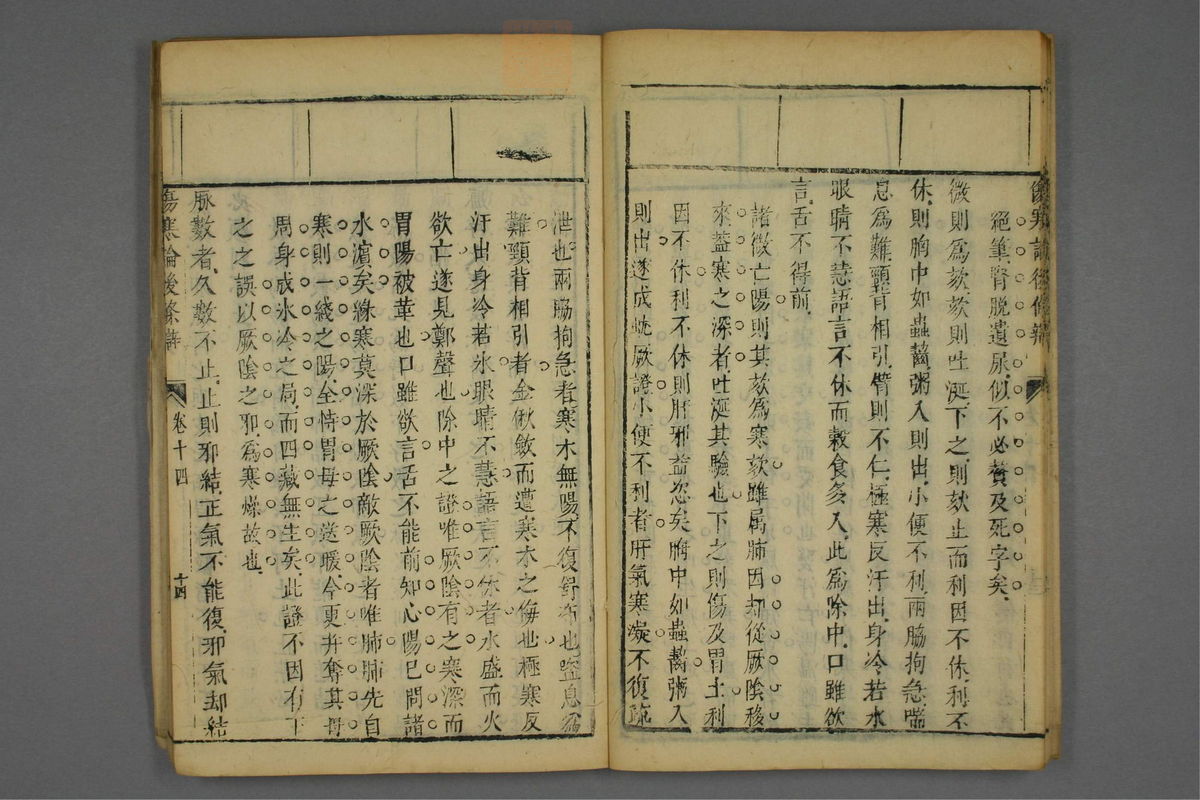 傷寒論後條辨
絕筆腎脫遺尿似不必贅及死字矣
微則爲欬欬則吐涎下之則欬止而利因不休利不
休則胸中如蟲齧粥入則出小便不利兩脇拘急喘
息爲難頸背相引臂則不仁極寒反汗出身冷若水
眼睛不慧語言不休而穀食多入此爲除中口雖欲
言舌不得前
諸微亡陽則其欬爲寒欬雖屬肺因却從厥陰移
來蓋寒之深者吐涎其驗也下之則傷及胃土利
因不休利不休則肝邪益恣矣胸中如蟲齧粥入
則出遂成蚘厥證小便不利者肝氣寒凝不復疏
泄也兩脇拘急者寒木無陽不復舒布也喘息爲
難頸背相引者金俶斂而遭寒木之侮也極寒反
汗出身冷若氷眼睛不慧語言不休者水盛而火
欲亡遂見鄭聲也除中之證唯厥陰有之寒深而
胃陽被革也口雖欲言舌不能前知心陽已問諸
水濵矣緣寒莫深於厥陰敵厥陰者唯肺肺先自
寒則一綫之陽全恃胃母之送暖今更并奪其母
周身成氷冷之局而四藏無生矣此證不因有下
之之誤以厥陰之邪爲寒燥故也
脈數者久數不止止則邪結正氣不能復邪氣却結
傷寒論後條辨
卷十四
十四